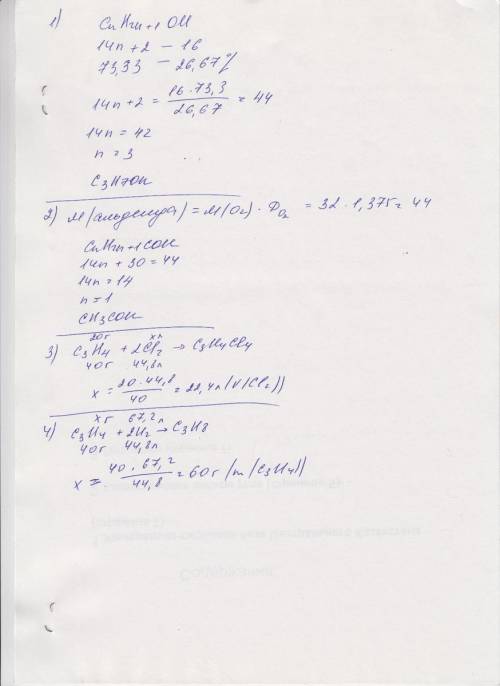 1) CnH2n+1 OH
14n+2 — 16
73,33 — 26,67%
14n+2 = 16·73,3 / 26,67 = 44
14n = 42
n = 3
C3H7OH
2) M(альдегида) = M(O2) · ФO2 = 32 · 1,375 = 44
CnH2n+1COH
14n + 30 = 44
14n = 14
n = 1
CH3COH
20г хл
3) C3H4 + 2Cl2 → C3H4Cl4
40г 44,8л
x = 20·44,8 / 40 = 22,4л (V(Cl2))
xг 67,2л
4) C3H4 + 2H2 → C3H8
40г 44,8л
x = 40·67,2 / 44,8 = 60г (m(C3H4))